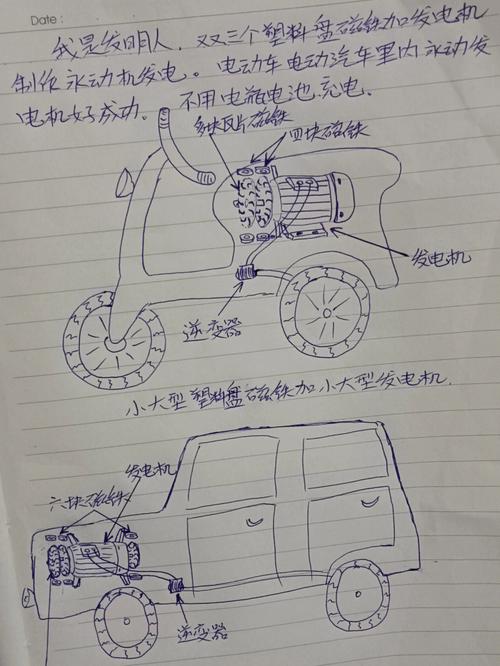 Date:
我是发明人，双三个塑料盘磁铁加发电机
制作永动机发电。电动车电动汽车里内永动发
电机好成功。不用电瓶电池充电．
多块瓦片磁铁
四块磁铁
发电机
逆变器
小大型塑料盘磁铁加小大型发电机．
发电机
六块磁铁
逆变器